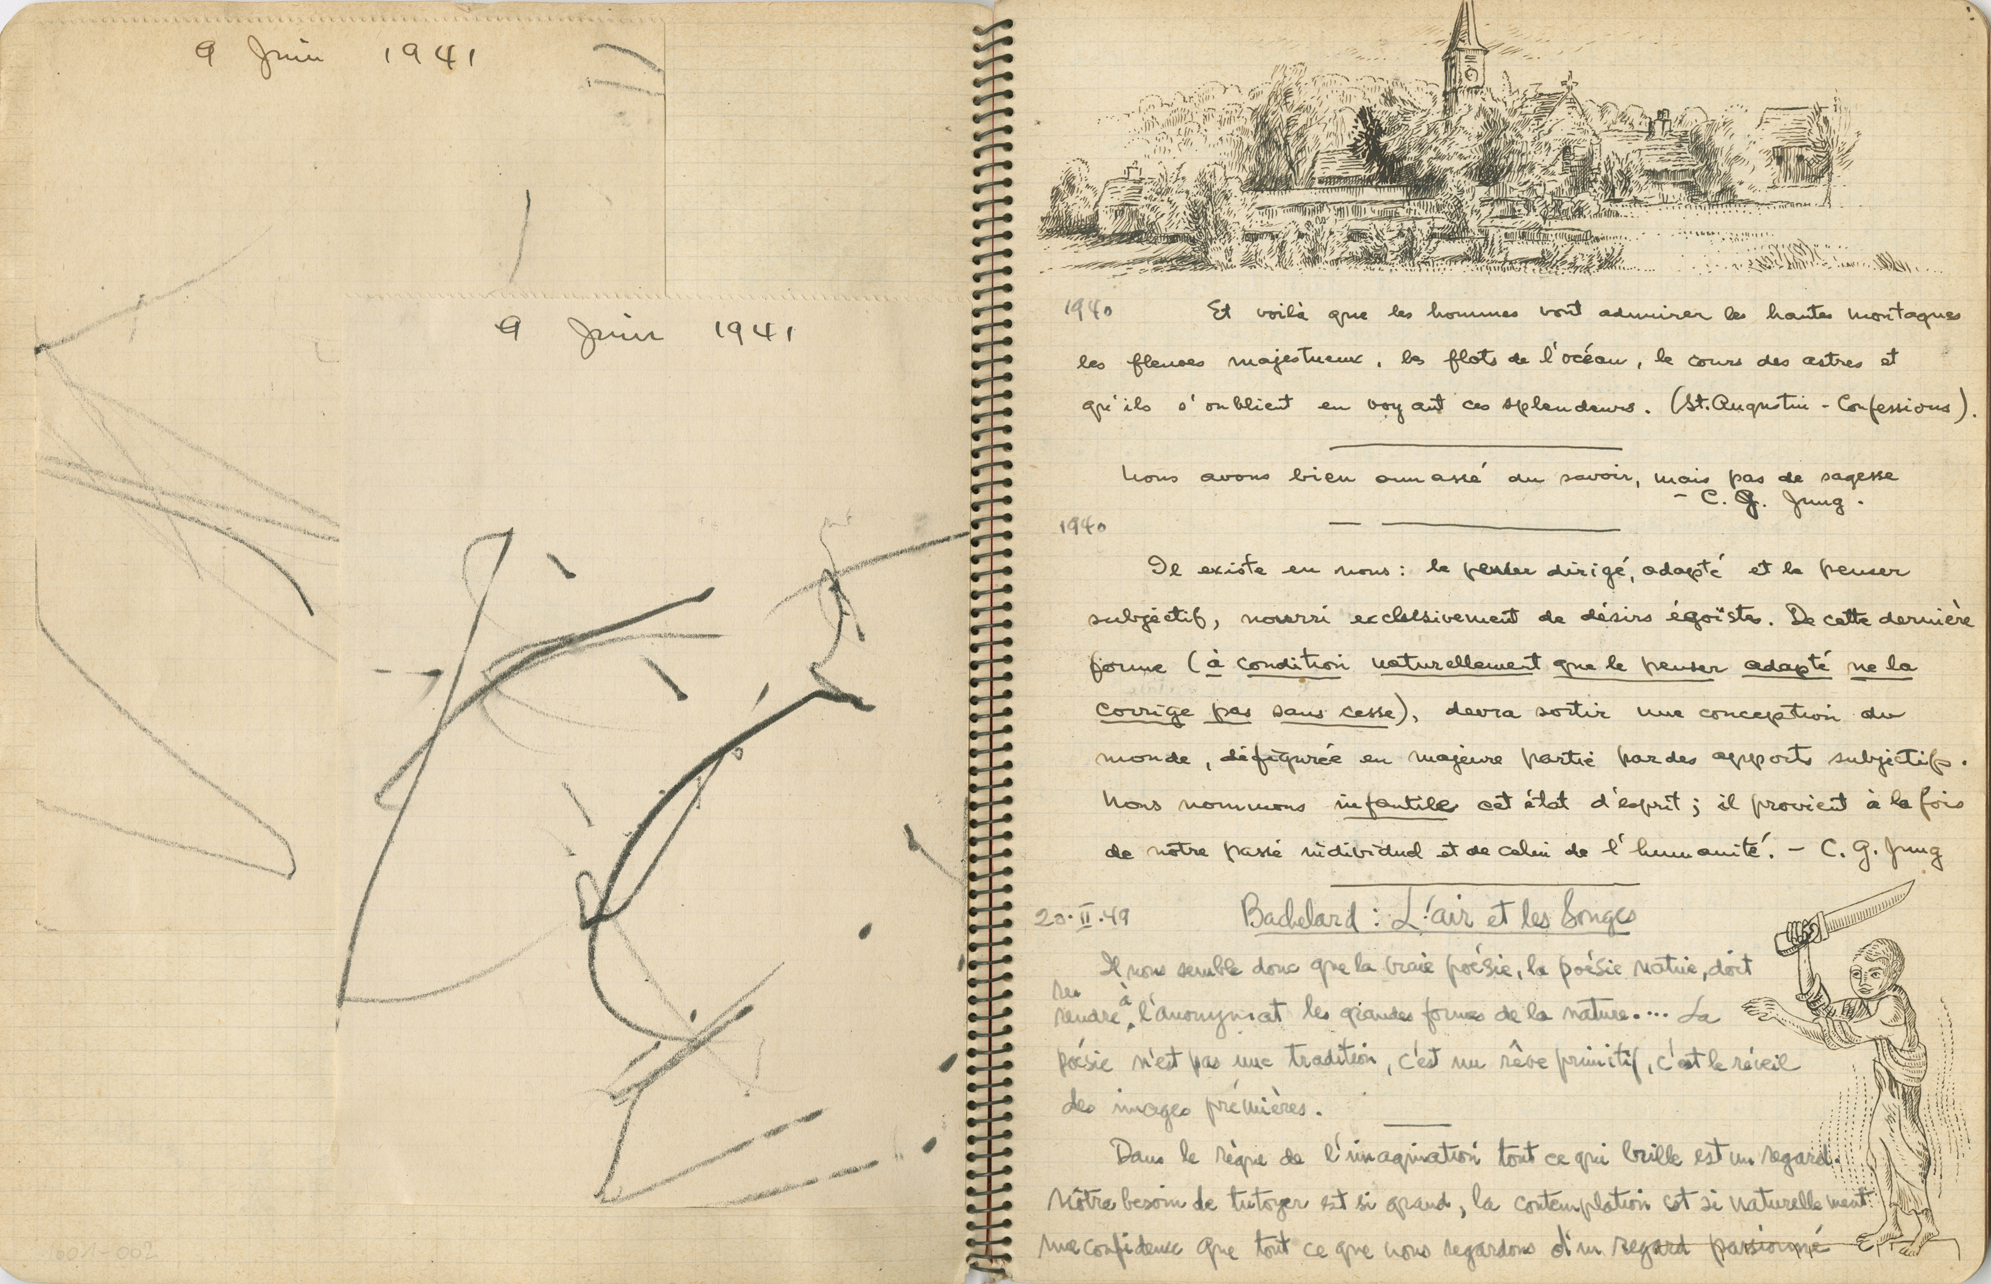 9 Juin 1941
9 Juin 1941
1940 Et voilà que les hommes vont admirer les hautes montagnes
les fleuves majestueux, les flots de l'océan, le cours des astres et
qu'ils s'oublient en voyant ces splendeurs. (St. Augustin - Confessions).
Nous avons bien amassé du savoir, mais pas de sagesse
- C. G. Jung.
1940
Il existe en nous: le penser dirigé, adapté et le penser
subjectif, nourri exclusivement de désirs égoïstes. De cette dernière
forme (à condition naturellement que le penser adapté ne la
corrige pas sans cesse), devra sortir une conception du
monde, défigurée en majeure partie par des apports subjectifs.
Nous nommons infantile cet état d'esprit; il provient à la fois
de notre passé individuel et de celui de l'humanité. - C. G. Jung
20.II.49 Bachelard: L'air et les Songes
Il nous semble donc que la vraie poésie, la poésie native, doit
re
rendre à l'anonymat les grandes formes de la nature.... La
poésie n'est pas une tradition, c'est un rêve primitif, c'est le réveil
des images prémières.
Dans le règne de l'imagination tout ce qui brille est un regard.
Nôtre besoin de tutoyer est si grand, la contemplation est si naturellement
une confidence que tout ce que nous regardons d'un regard passionné
1601-002